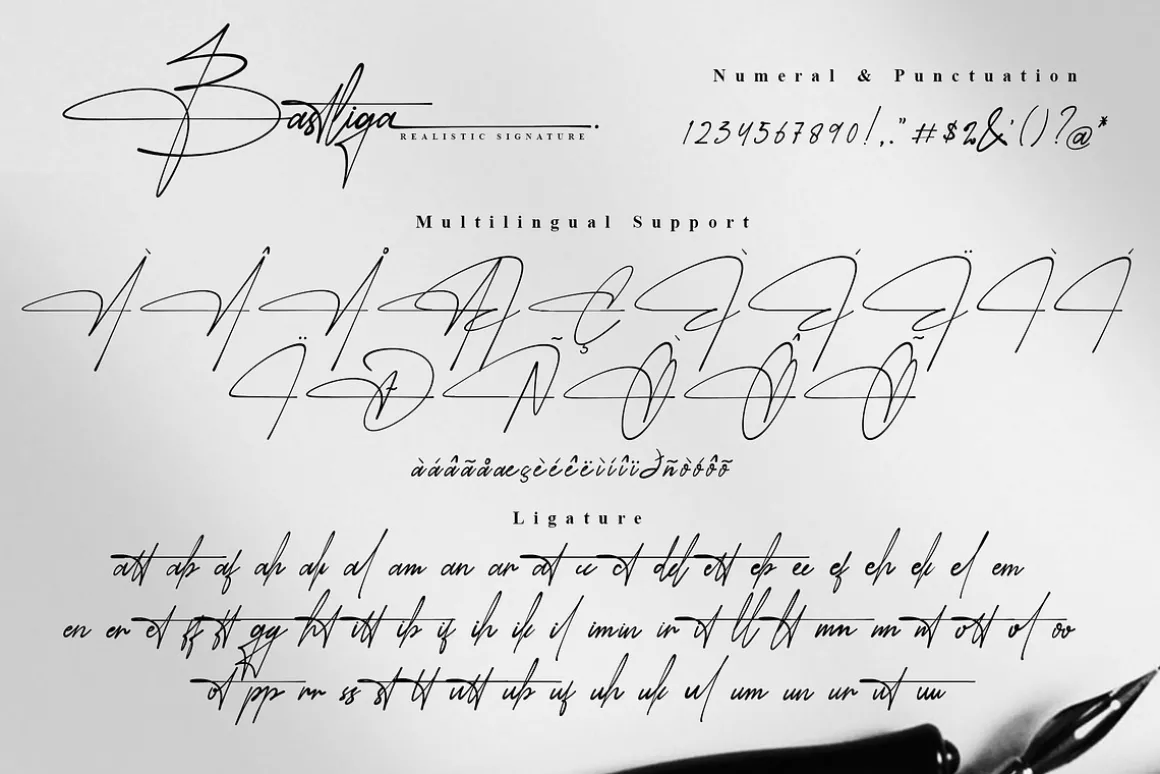 Bastliga
REALISTIC SIGNATURE
Numeral & Punctuation
1234567890!,."#$2&'()?@*
Multilingual Support
À Â Å Æ Ç À Á Ä Ì Í
Ï Ð Ñ Ò Ô Õ
àáâãåæçèéêëìíîïðñòóôõ
Ligature
att ab af ah ak al am an ar at cc ct del ett eb ee ef eh ek el em
en er et ff ft gg ht itt ib if ih ik il imin ir it ll lt mn nn nt ott ol oo
ot pp rr ss st tt utt ub uf uh uk ul um un ur ut uu